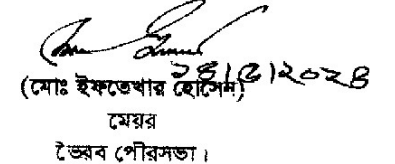 ২৪/৫/২০২৪
(মোঃ ইফতেখার হোসেন)
মেয়র
ভৈরব পৌরসভা।